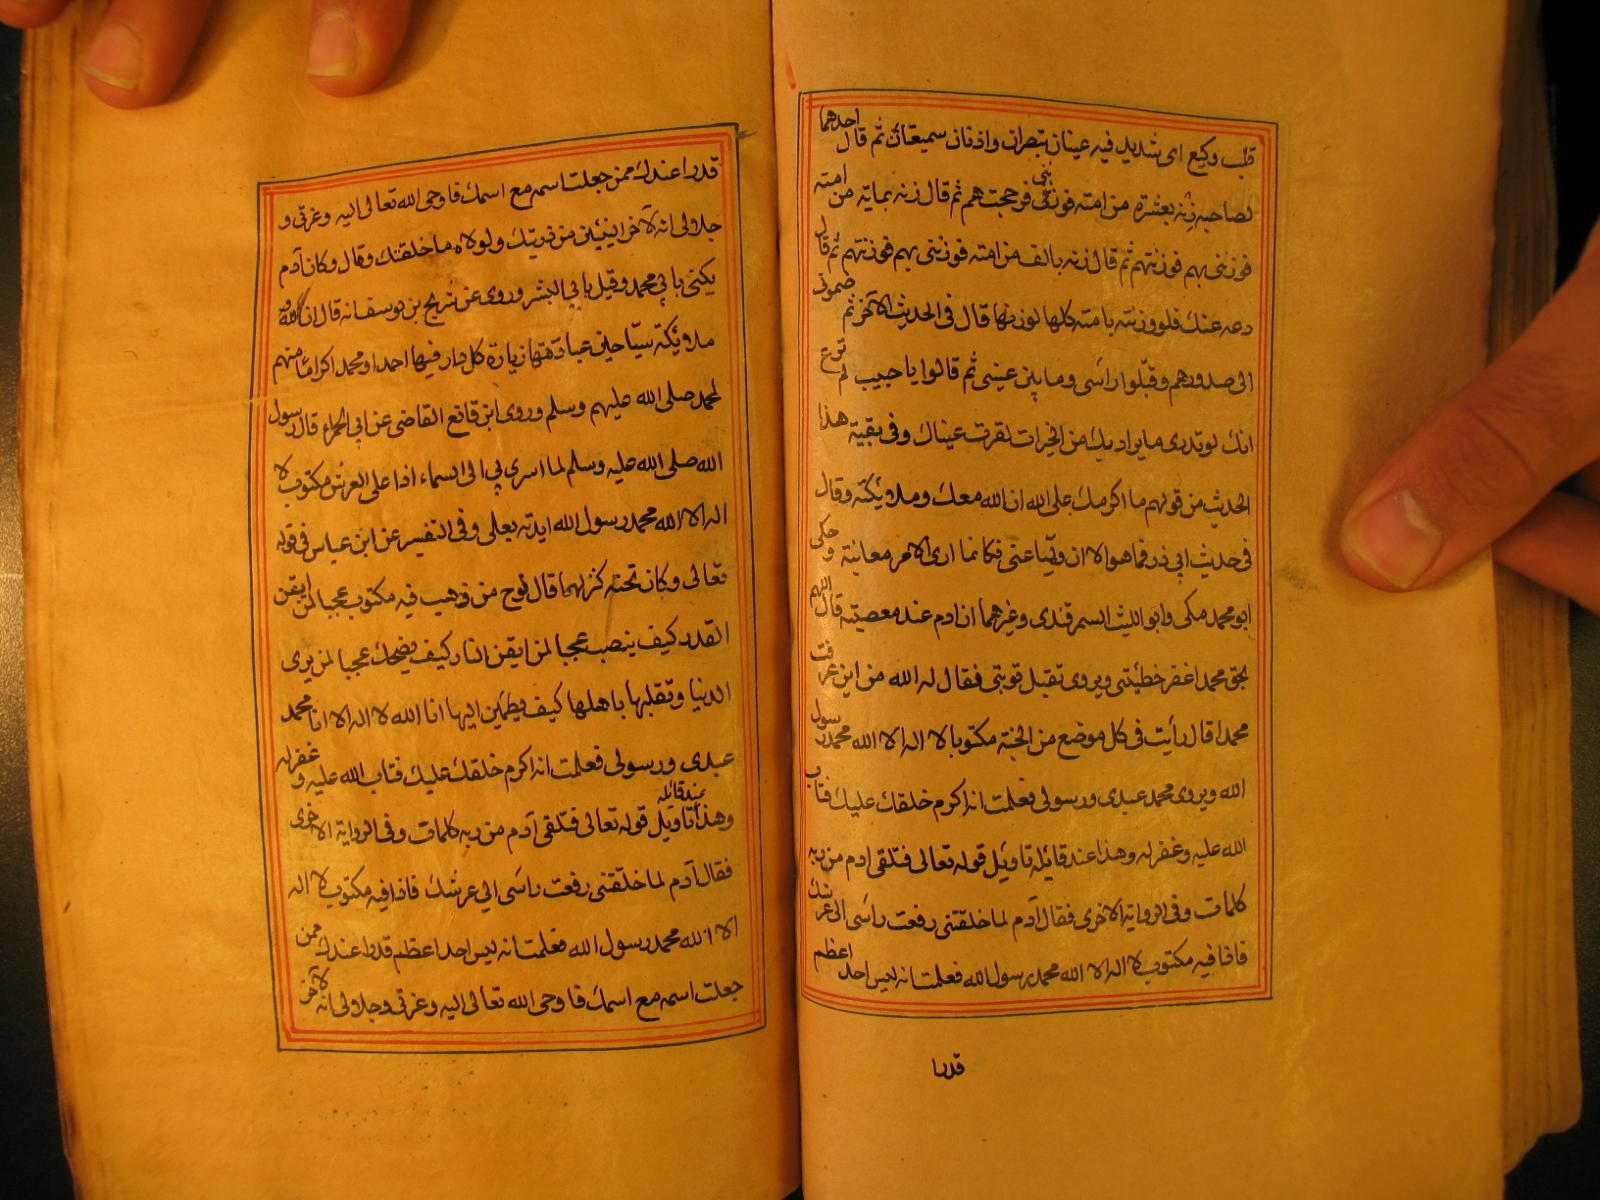 قلب وكيع اى شديد فيه عينان تبصران واذنان سميعتان ثم قال احدهما
لصاحبه زنه بعشرة من امته فوزننى فرجحت هم ثم قال زنه بماية من امته
فوزننى بهم فوزنتهم ثم قال زنه بالف من امته فوزننى بهم فوزنتهم ثم قال
دعه عنك فلو وزنته بامته كلها لوزنها قال فى الحديث الآخر ثم ضمونى
الى صدورهم وقبلوا راسى وما بين عينى ثم قالوا يا حبيب لم ترع
انك لو تدرى ما يراد بك من الخيرات لقرت عيناك وفى بقية هذا
الحديث من قولهم ما اكرمك على الله ان الله معك وملايكته وقال
فى حديث ابي ذر فما هو الا ان وليا عنى فكانما ارى الامر معاينة و حكى
ابو محمد مكى وابو الليث السمرقندى وغيرهما ان ادم عند معصيته قال اللهم
بحق محمد اغفر خطيئتى ويروى تقبل توبتى فقال له الله من اين عرفت
محمدا قال رأيت فى كل موضع من الجنة مكتوبا لا اله الا الله محمد رسول
الله ويروى محمد عبدى ورسولى فعلمت انه اكرم خلقك عليك فتاب
الله عليه وغفر له وهذا عند قائله تاويل قوله تعالى فتلقى ادم من ربه
كلمات وفى الرواية الاخرى فقال آدم لما خلقتنى رفعت راسى الى عرشك
فاذا فيه مكتوب لا اله الا الله محمد رسول الله فعلمت انه ليس احد اعظم
قدرا
قدرا عندك ممن جعلت اسمه مع اسمك فاوحى الله تعالى اليه وعزتى و
جلالى انه لآخر النبيين من ذريتك ولولاه ما خلقتك وقال وكان آدم
يكنى بابي محمد وقيل بابي البشر وروى عن شريح بن يوسف انه قال ان لله
ملايكة سياحين عبادتها زيارة كل دار فيها احد او محمد اكراما منهم
لمحمد صلى الله عليهم وسلم وروى ابن قانع القاضى عن ابي الحمراء قال رسول
الله صلى الله عليه وسلم لما اسرى بي الى السماء اذا على العرش مكتوب لا
اله الا الله محمد رسول الله ايدته بعلى وفى التفسير عن ابن عباس فى قوله
تعالى وكان تحته كنز لهما قال لوح من ذهب فيه مكتوب عجبا لمن ايقن
القدر كيف ينصب عجبا لمن ايقن النار كيف يضحك عجبا لمن يرى
الدنيا وتقلبها باهلها كيف يطمئن اليها انا الله لا اله الا انا محمد
عبدى ورسولى فعلمت انه اكرم خلقك عليك فتاب الله عليه و غفر له
وهذا عند قائله تاويل قوله تعالى فتلقى آدم من ربه كلمات وفى الرواية الاخرى
فقال آدم لما خلقتنى رفعت راسى الي عرشك فاذا فيه مكتوب لا اله
الا الله محمد رسول الله فعلمت انه ليس احد اعظم قدرا عندك ممن
جعلت اسمه مع اسمك فاوحى الله تعالى اليه وعزتي وجلالى انه لآخر